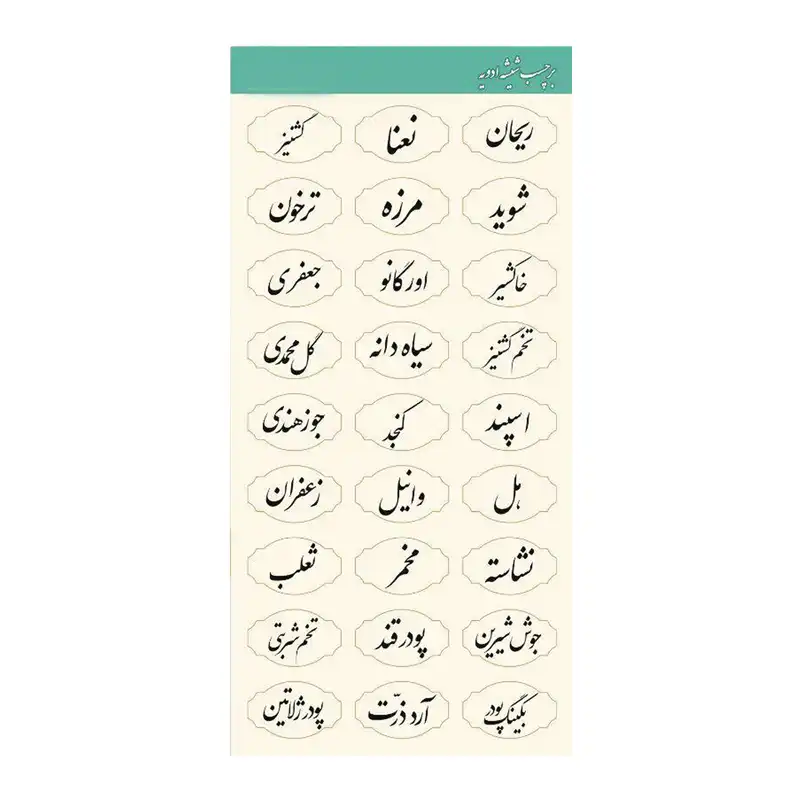 برچسب شیشه ادویه
ریحان نعنا کشنیز
شوید مرزه ترخون
خاکشیر اورگانو جعفری
تخم کشنیز سیاه دانه گل محمدی
اسپند کنجد جوز هندی
هل وانیل زعفران
نشاسته مخمر ثعلب
جوش شیرین پودر قند تخم شربتی
بکینگ پودر آرد ذرّت پودر ژلاتین